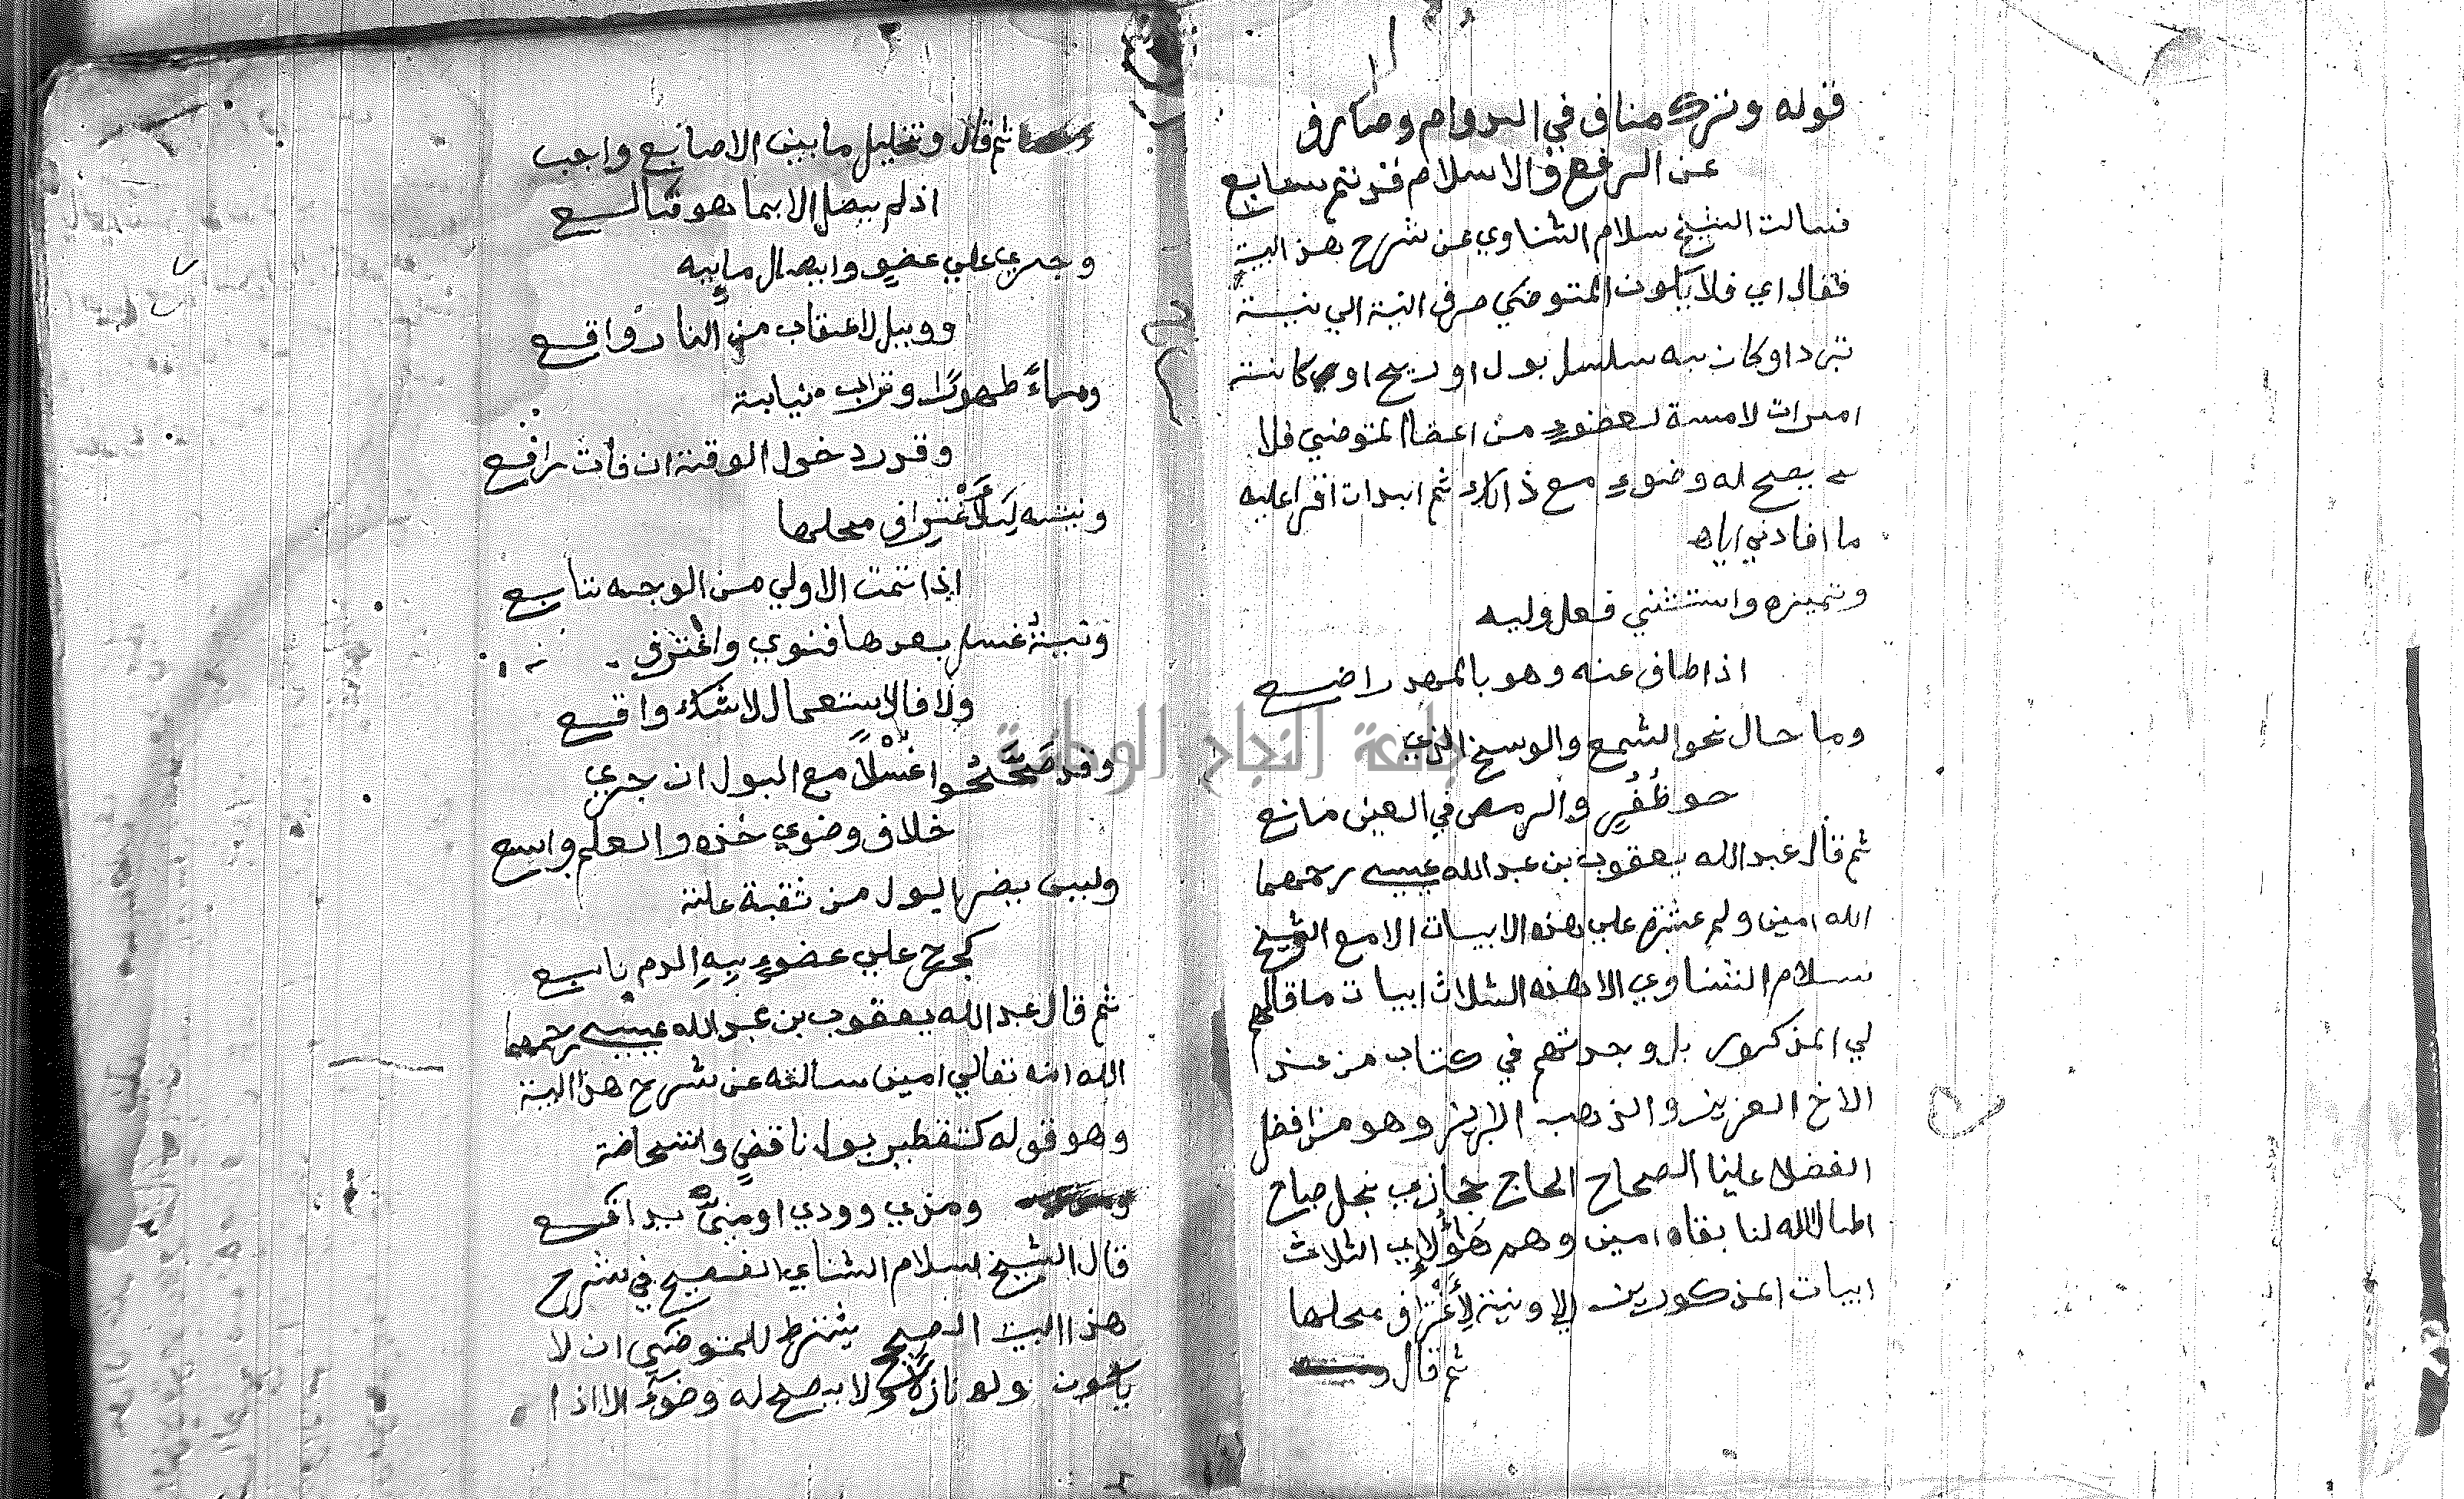 قوله وترك مناف في الدوام وصارف
عن الرفع والاسلام قد تم سابع
فسالت الشيخ سلام الشناوي عن شرح هذ البيت
فقال اي فلا يكون المتوضي صرف النية الي نية
تبرد او كان به سلسل بول او ريح او كانت
امرات لامسة لعضوء من اعضا المتوضي فلا
يصح له وضوء مع ذالك ثم ابدات اقرا عليه
ما افادني اياه
وتميزه واستثني فعل وليه
اذا طاف عنه وهو بالمهد راضع
وما حال نحو الشمع والوسخ الذي
حو ظُفُرٍ والرمص في العين مانع
ثم قال عبد الله يعقوب بن عبد الله عيسي رحمهما
الله امين ولم عثرة علي هذه الابيات الا مع الشيخ
سلام الشناوي الا هذه الثلاث ابيات ما قالهم
لي المذكور بل وجدتهم في كتاب من عند
الاخ العزيز والذهب الابريز وهو من افضل
الفضلا علينا الصحاح الحاج حجازي نجل صباح
اطال الله لنا بقاه امين وهم هَؤلإي الثلاث
ابيات المذكورين الاونية لأغتراف محلها
ثم قال
ثم قال وتخليل ما بين الاصابع واجب
اذ لم يصل الا بما هو قالع
وجري علي عضو وايصال مايه
وويل لاعقاب من النار واقع
وماءً طهورًا وتراب نيابة
وقدر دخول الوقت ان فات رافع
ونيته لأغتراف محلها
اذا تمت الاولي من الوجه تتابع
ونية غسل بعدها فنوي واغترف
ولا فالاستعمال لا شك واقع
وقد صَحَّحُوا غُسْلًا مع البول ان جري
خلاف وضوي خذه والعلم واسع
وليس يضر البول من ثقبة علت
كجرح علي عضوءٍ بِهِ الدم نابع
ثم قال عبد الله يعقوب بن عبد الله عيسي رحمهما
الله انه تعالي امين سالته عن شرح هذ البيت
وهو قوله كتقطير بول ناقضٍ واستحاضة
ومذي وودي او منيٌّ يدافع
قال الشيخ سلام الشناي الفصيح في شرح
هذا البيت الصحيح يشترط للمتوضي ان لا
يكون بوله نازلا ولا يصح له وضوء الا اذا
جامعة النجاح الوطنية